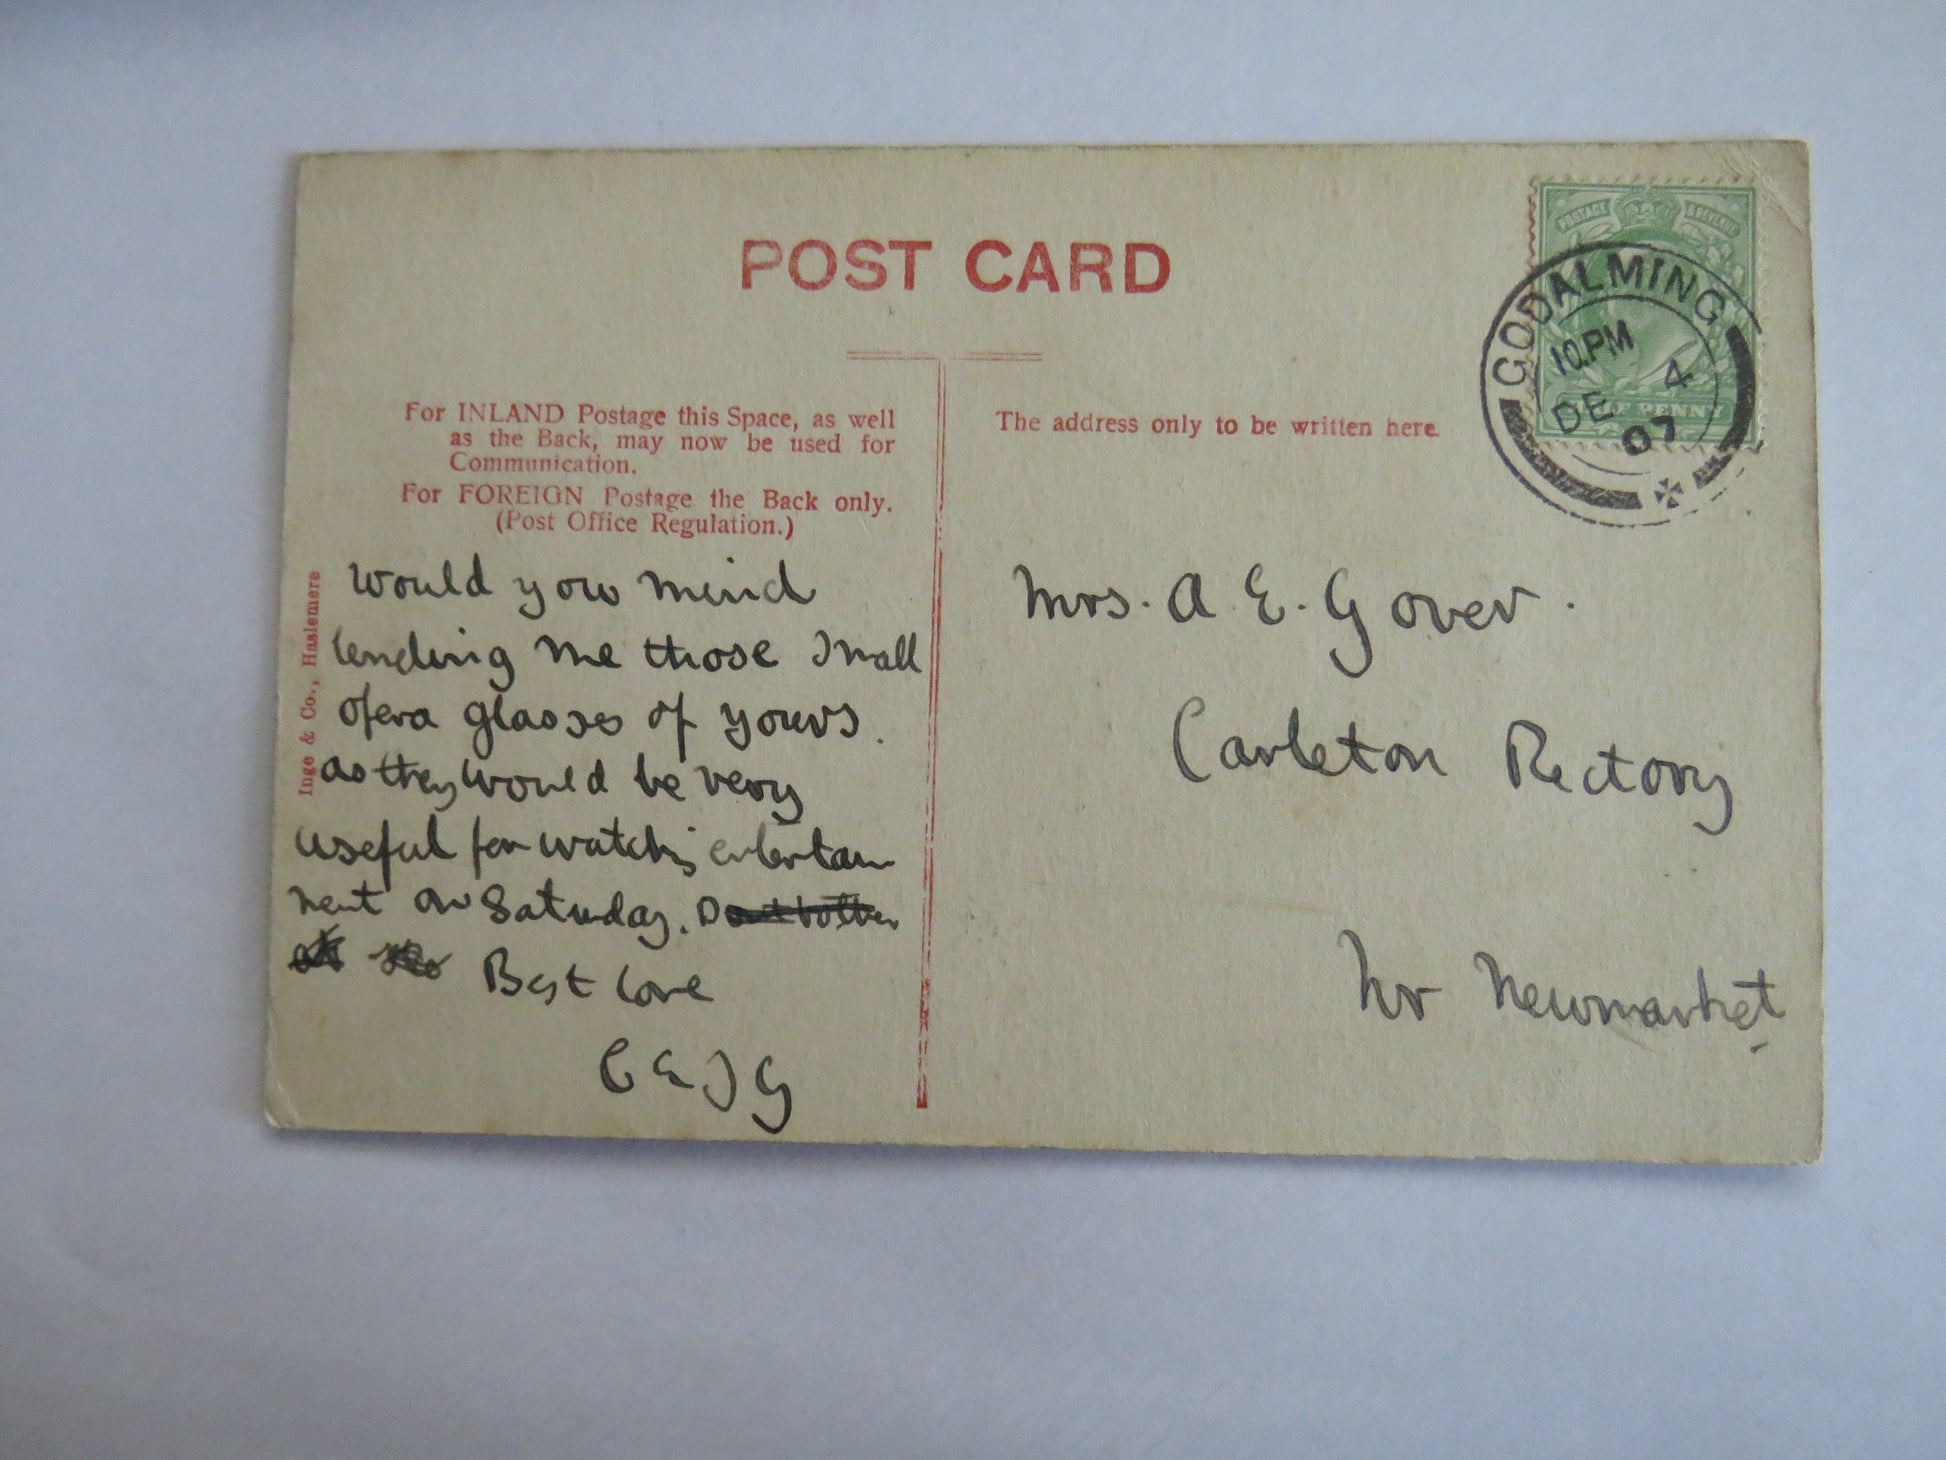 POST CARD
POSTAGE & REVENUE
GODALMING
10.PM
DE 4
07
HALF PENNY
For INLAND Postage this Space, as well
as the Back, may now be used for
Communication.
For FOREIGN Postage the Back only.
(Post Office Regulation.)
The address only to be written here.
Inge & Co., Haslemere
Would you mind
lending me those small
opera glasses of yours.
as they would be very
useful for watching entertain
ment on Saturday. Dont bother
Best love
C E J G
Mrs. A. E. Gover.
Carleton Rectory
Nr Newmarket